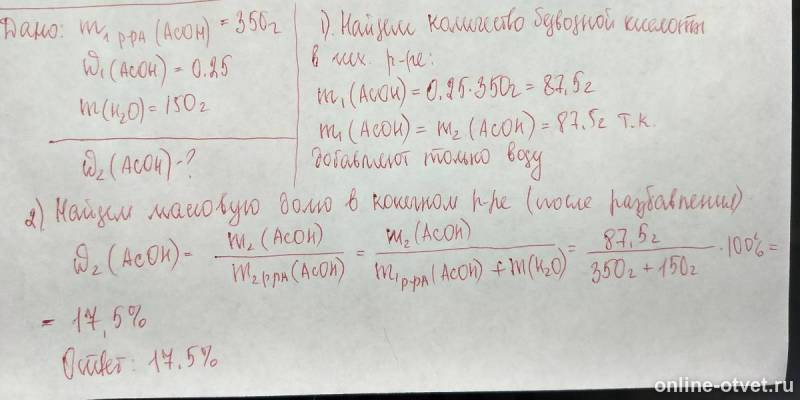 Дано: m₁ р-ра (AcOH) = 350г
ω₁(AcOH) = 0.25
m(H₂O) = 150г
ω₂(AcOH) - ?
1). Найдем количество безводной кислоты
в исх. р-ре:
m₁(AcOH) = 0,25·350г = 87,5г
m₁(AcOH) = m₂(AcOH) = 87.5г т.к.
добавляют только воду
2) Найдем массовую долю в конечном р-ре (после разбавления)
ω₂(AcOH) = m₂(AcOH) / m₂ р-ра(AcOH) = m₂(AcOH) / m₁ р-ра(AcOH) + m(H₂O) = 87.5г / 350г + 150г · 100% =
= 17,5%
Ответ: 17.5%
online-otvet.ru